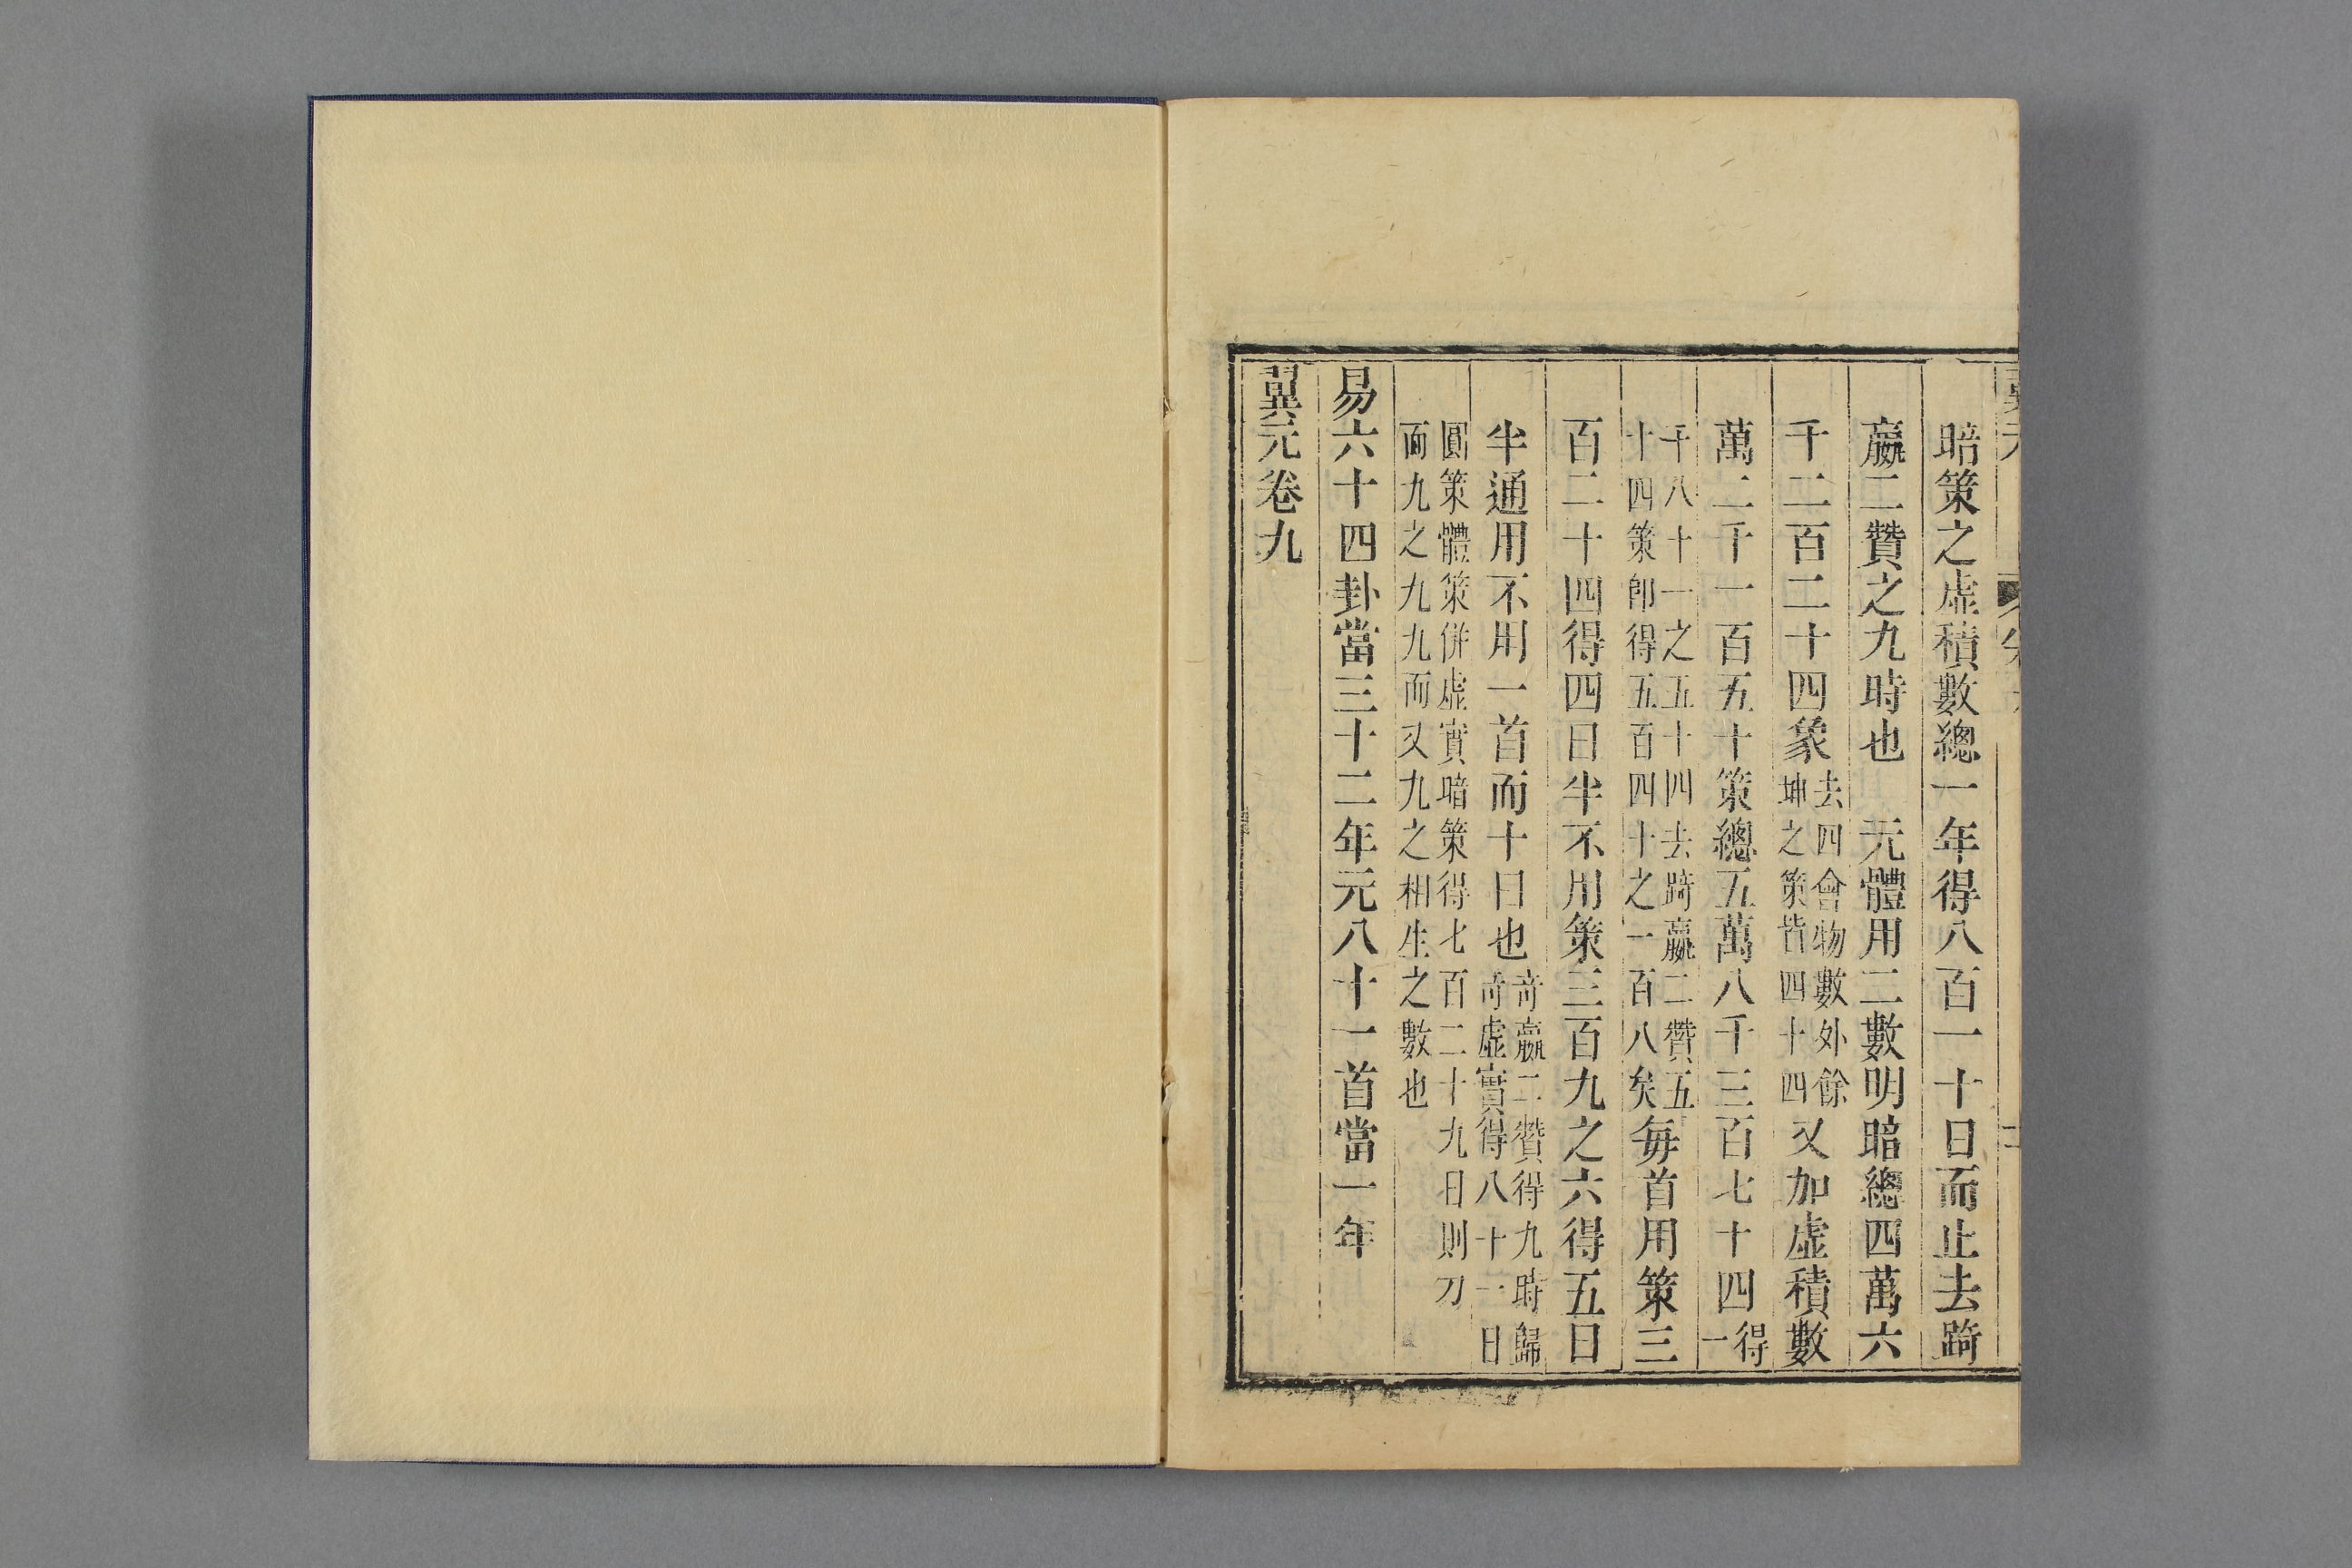 暗策之虛積數總一年得八百一十日而止去踦
嬴二贊之九時也　元體用二數明暗總四萬六
千二百二十四象去四會物數外餘坤之策皆四十四又加虛積數
萬二千一百五十策總五萬八千三百七十四得一
千八十一之五十四去踦嬴二贊五十四策即得五百四十之一百八矣每首用策三
百二十四得四日半不用策三百九之六得五日
半通用不用一首而十日也奇嬴二贊得九時歸奇虛實得八十一日
圓策體策併虛實暗策得七百二十九日則刀面九之九九而又九之相生之數也
易六十四卦當三十二年元八十一首當一年
翼元卷九